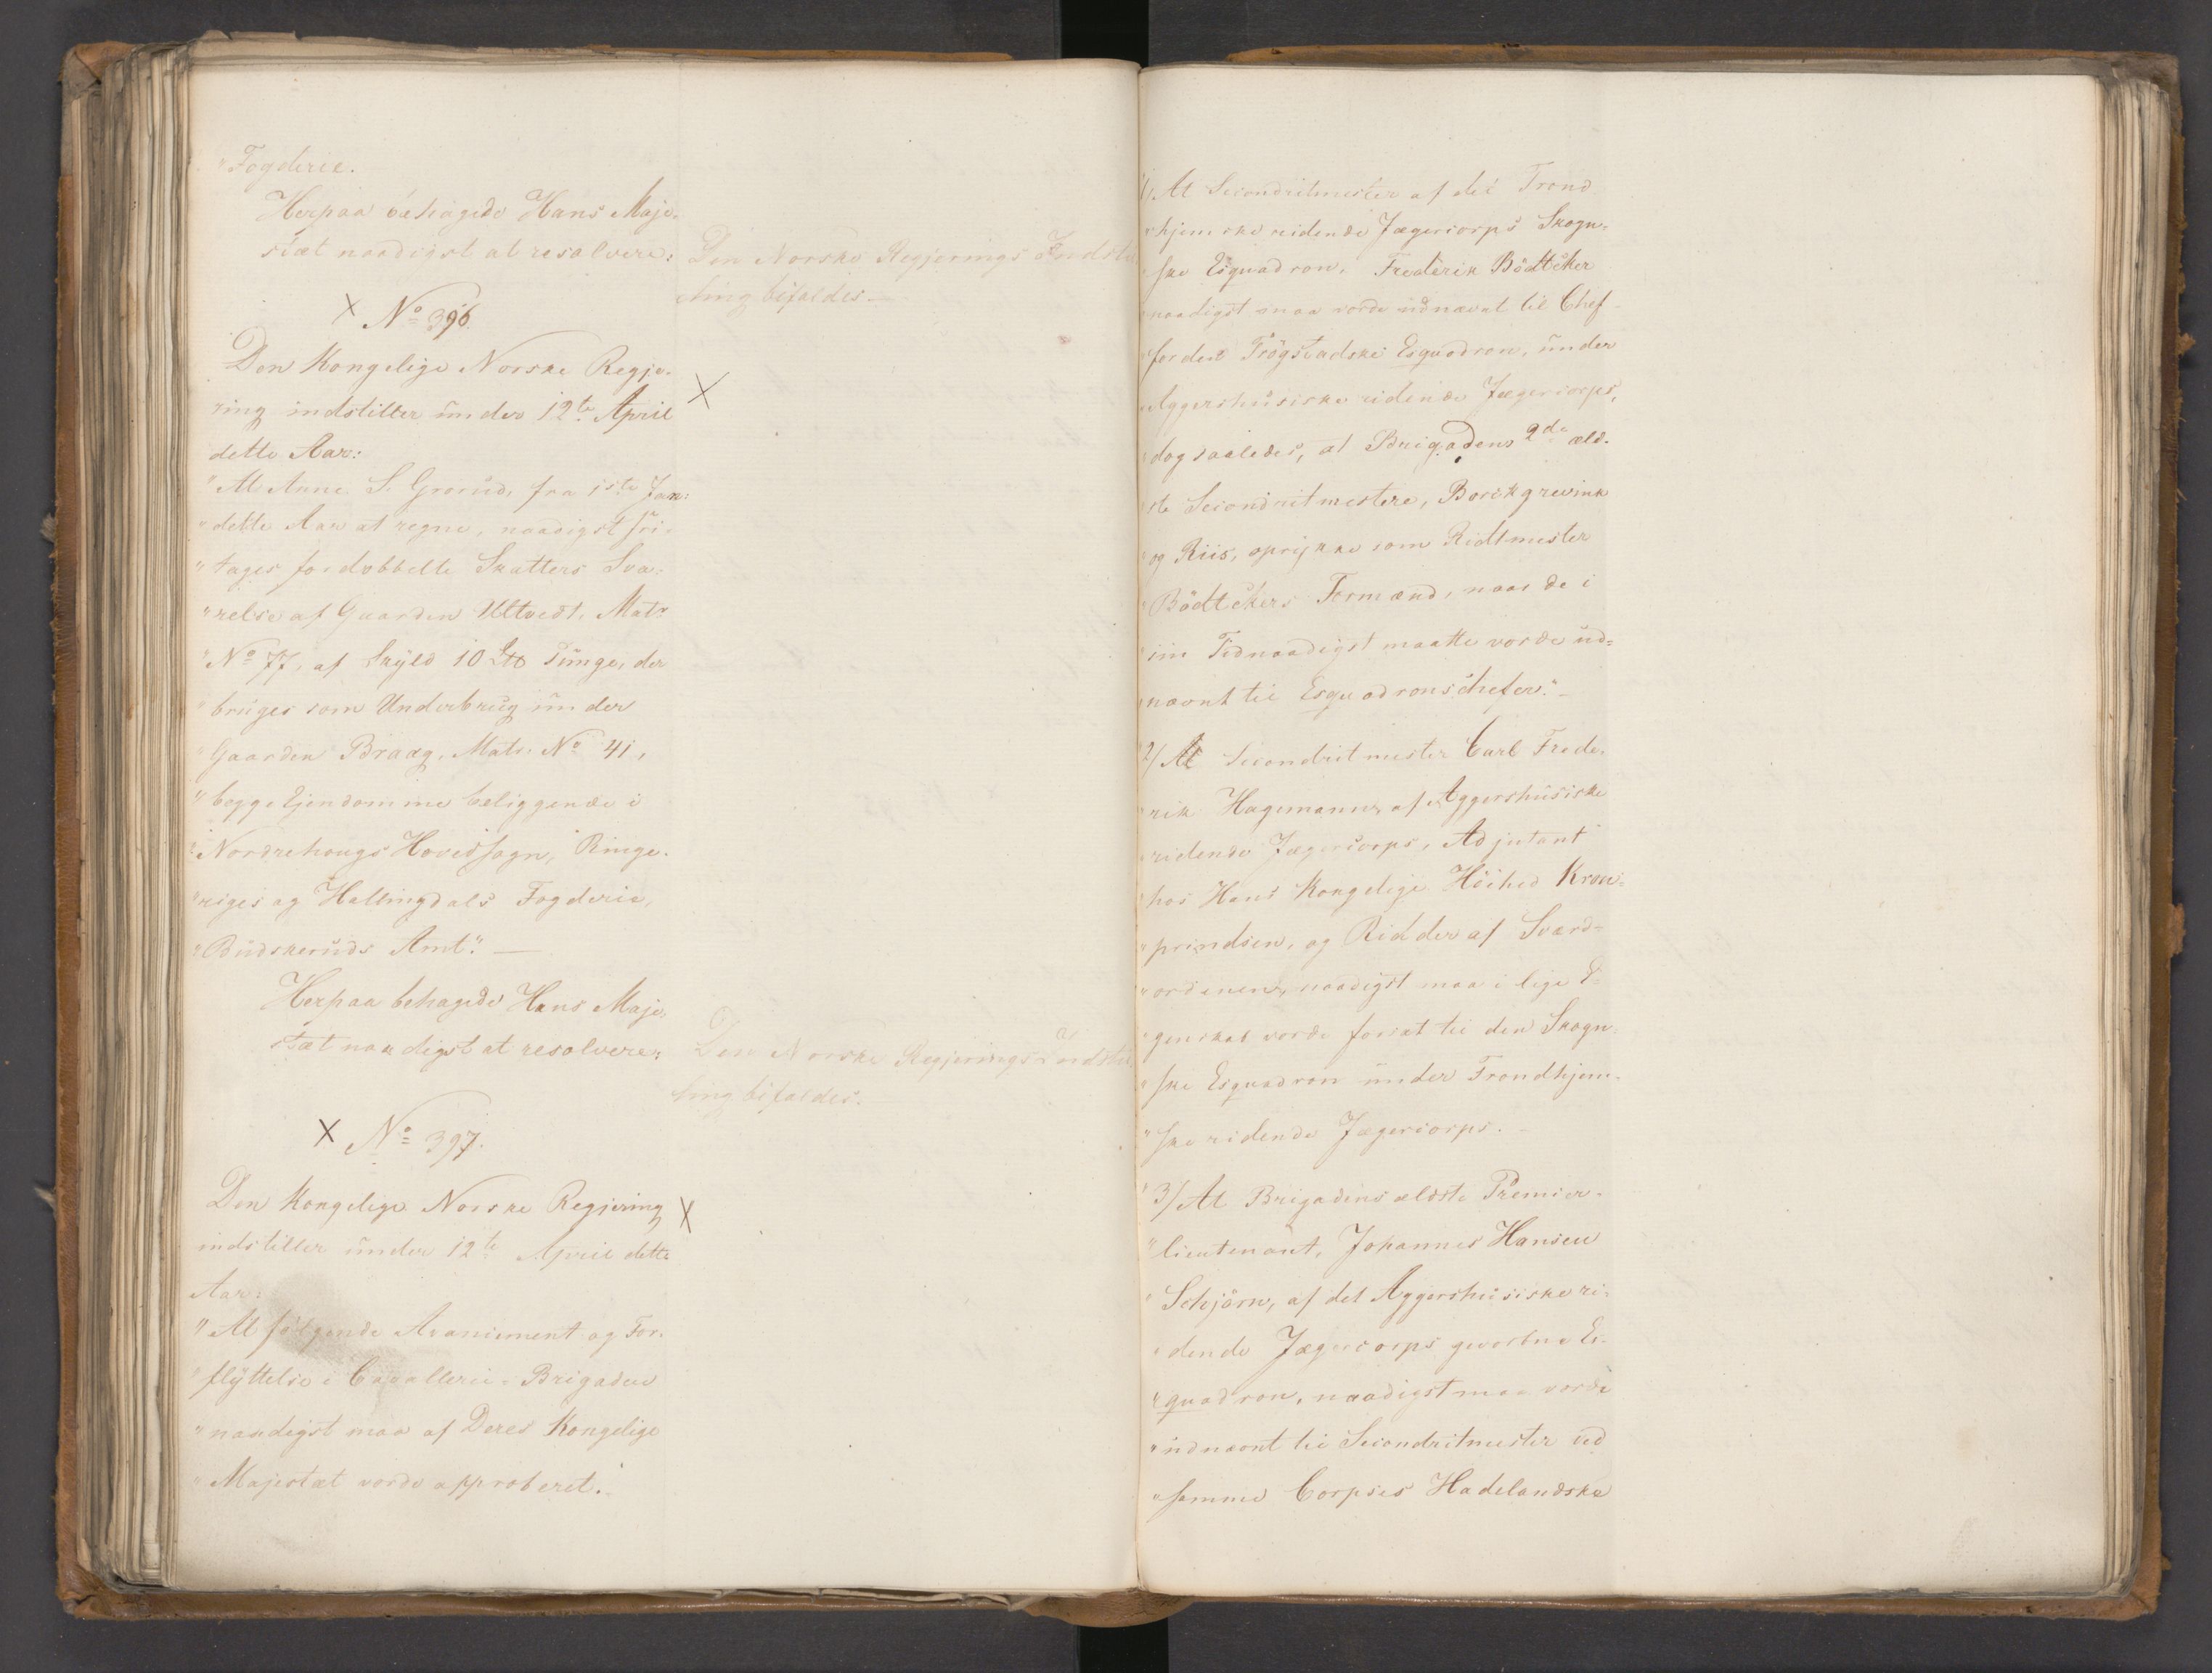 "Fogderie.
Herpaa behagede Hans Maje-
stæt naadigst at resolvere:
Den Norske Regjerings Indstil-
ling bifaldes.—
X No 396.
Den Kongelige Norske Regje-
X
ring indstiller ünder 12te April
dette Aar:
"At Anne S. Grorüd, fra 1ste Jan:
"dette Aar at regne, naadigst fri-
"tages for dobbelte Skatters Sva-
"relse af Gaarden Ultvedt, Matr
"No 77, af Skÿld 10 Lb Tünge, der
"brüges som Underbrüg ünder
"Gaarden Braag, Matr. No 41,
"begge Ejendomme beliggende i
"Nordrehougs Hovedsogn, Ringe-
"riges og Hallingdals Fogderie,
"Büdskerüds Amt." —
Herpaa behagede Hans Maje-
stæt naadigst at resolvere:
Den Norske Regjerings Indstil-
ling bifaldes.—
X No 397.
Den Kongelige Norske Regjering
X
indstiller ünder 12te April dette
Aar:
"At følgende Avancement og For-
"flÿttelse i Cavallerie-Brigaden
"naadigst maa af Deres Kongelige
"Majestæt vorde approberet.
"1/ At Secondritmester af det Trond-
"hjemske ridende Jægercorps Skogn-
"ske Esquadron, Frederik Bödtcker
"naadigst maa vorde üdnævnt til Chef
"for den Trögstadske Esquadron, ünder
"Aggershüsiske ridende Jægercorps,
"dog saaledes, at Brigadens 2de æld-
"ste Secondritmestere, Borchgrevink
"og Riis, oprÿkke som Ridtmester
"Bödtckers Formænd, naar de i
"sin Tid naadigst maatte vorde üd-
"nævnt til Esquadronschefer."—
"2/ At Secondritmester Carl Frede-
"rik Hagemann, af Aggershüsiske
"ridende Jægercorps, Adjutant
"hos Hans Kongelige Höihed Kron-
"prindsen, og Ridder af Sværd-
"ordenen, naadigst maa i lige E-
"genskab vorde forsat til den Skogn-
"ske Esquadron ünder Trondhjem-
"ske ridende Jægercorps.—
"3/ At Brigadens ældste Premier-
"lieutenant, Johannes Hansen
"Schjörn, af det Aggershüsiske ri-
"dende Jægercorps gevorbne Es-
"quadron, naadigst maa vorde
"üdnævnt til Secondritmester ved
"samme Corpses Hadelandske